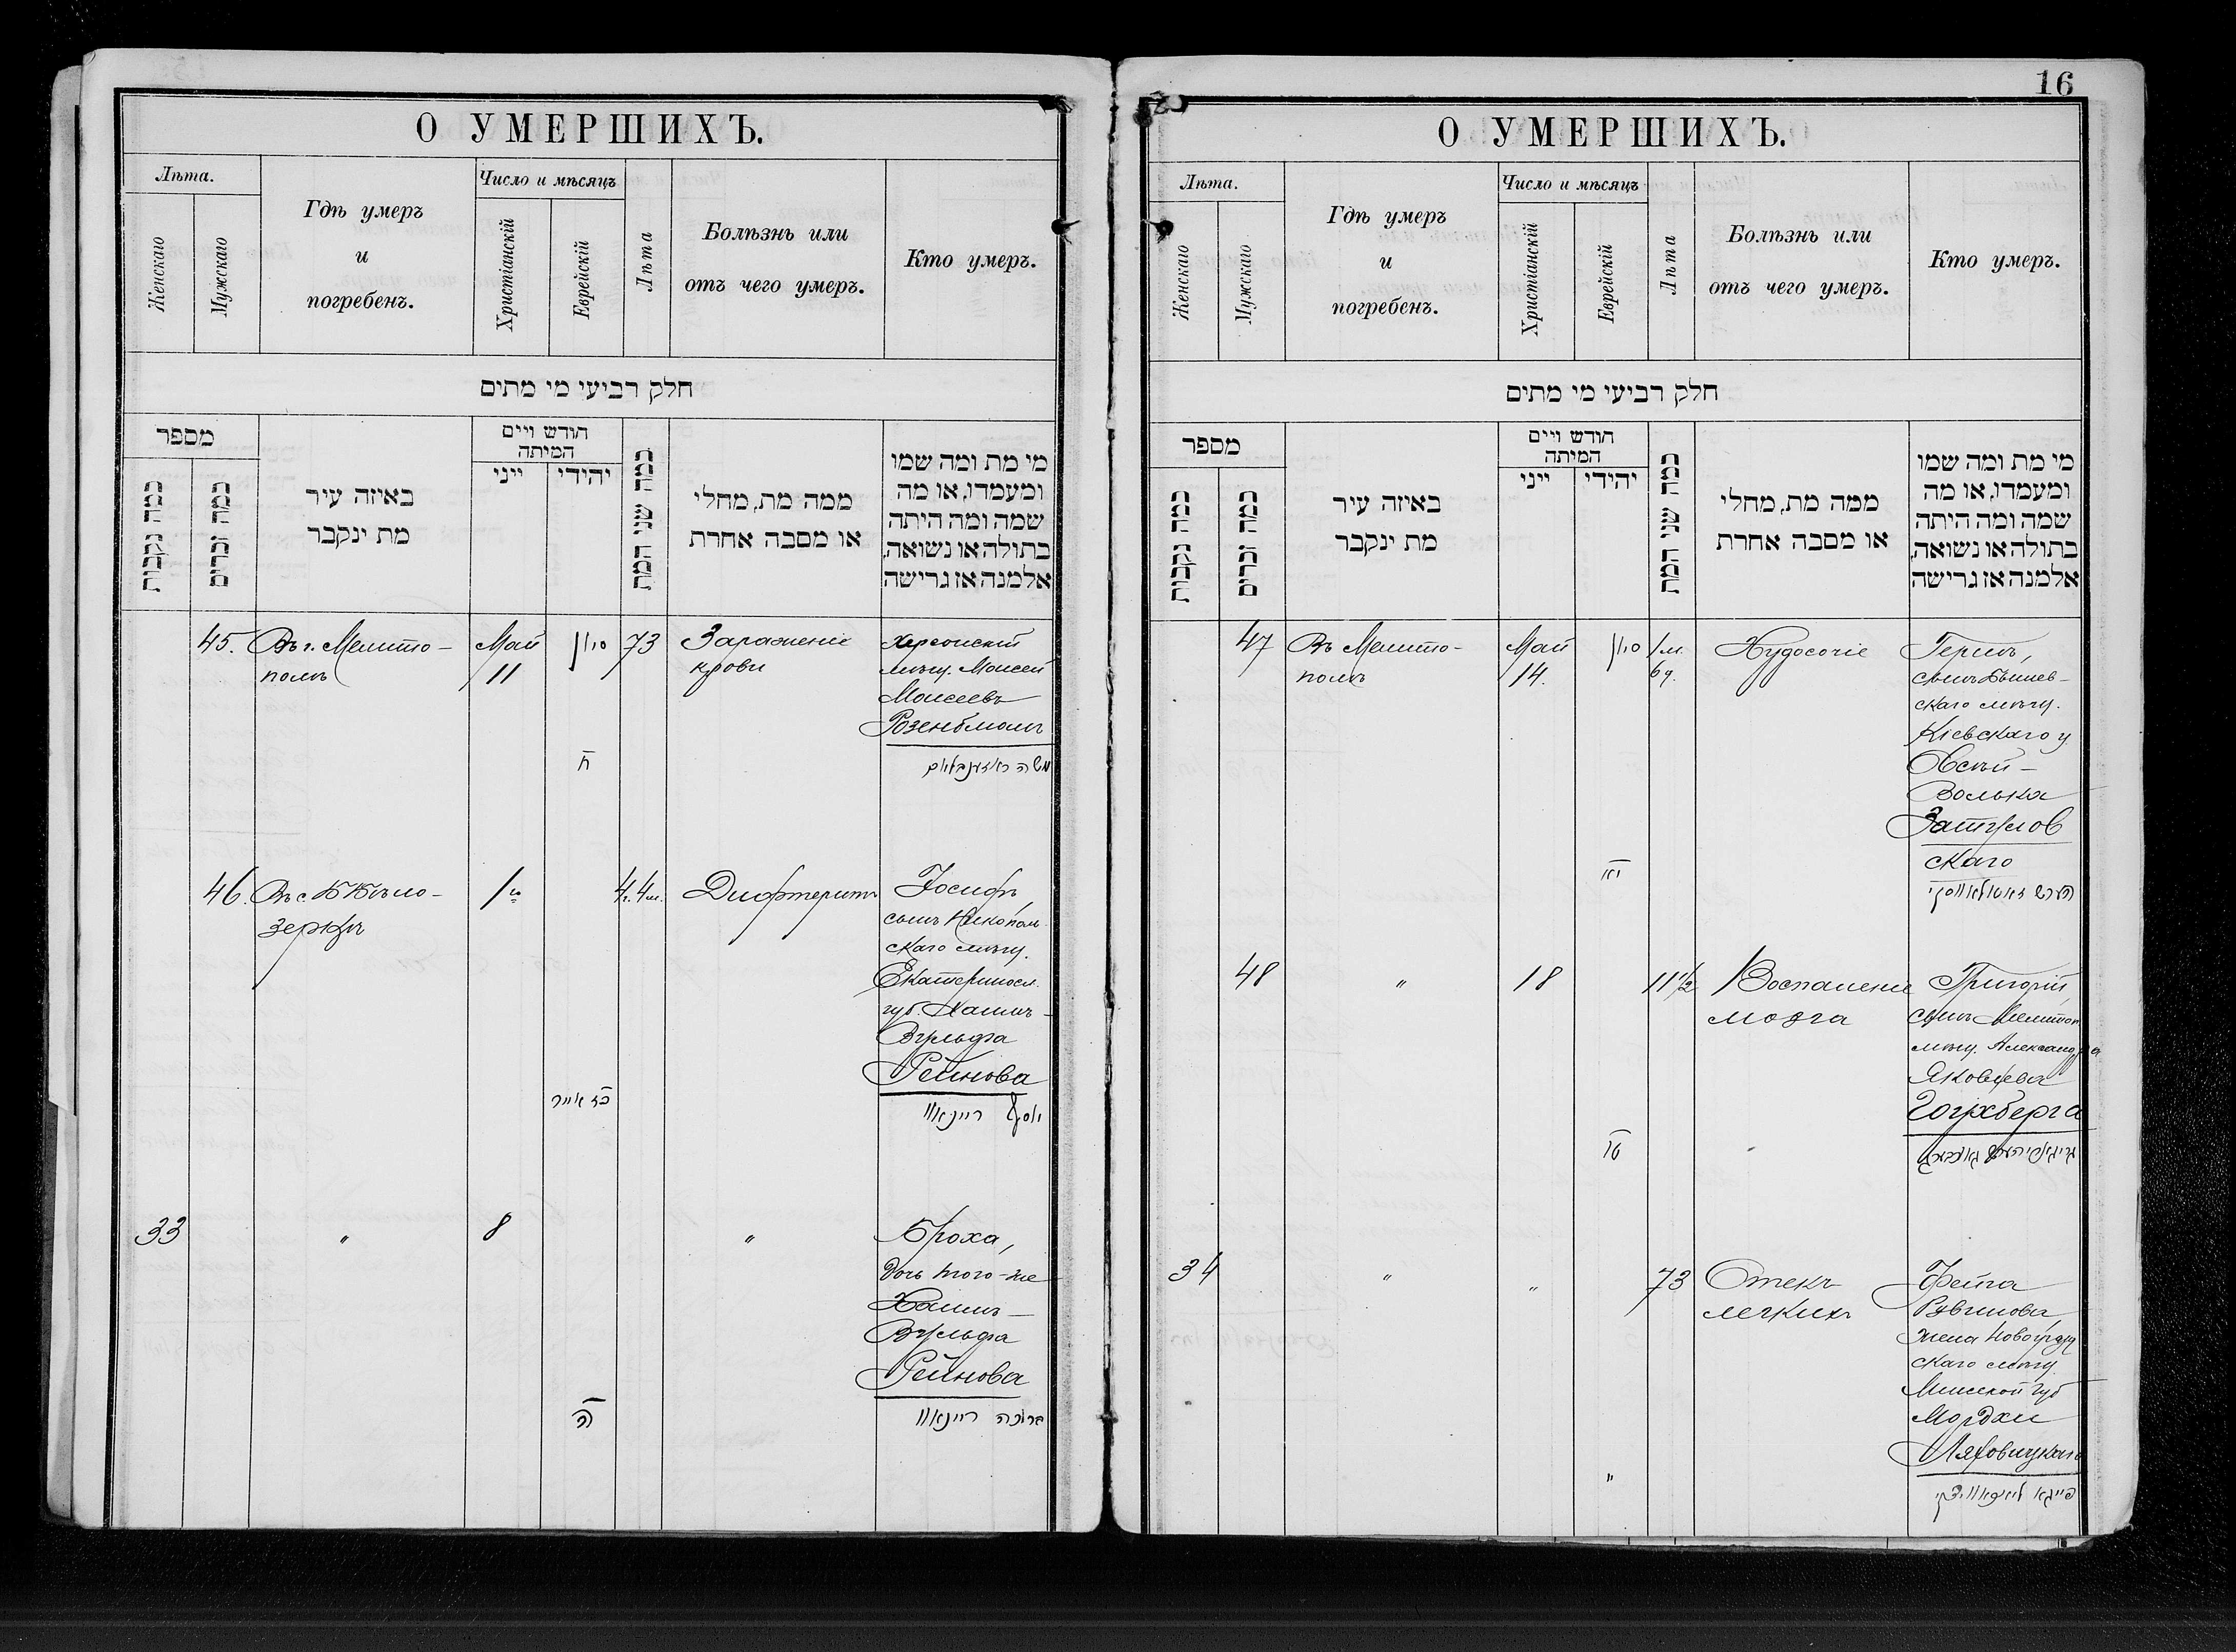 О УМЕРШИХЪ.
Лѣта.
Женскаго
Мужскаго
Гдѣ умеръ
и
погребенъ.
Число и мѣсяцъ
Христіанскій
Еврейскій
Лѣта
Болѣзнь или
отъ чего умеръ.
Кто умеръ.
חלק רביעי מי מתים
מספר
כמה נקבות
כמה זכרים
באיזה עיר
מת ינקבר
חודש ויים
המיתה
ייני
יהידי
כמה שני המת
ממה מת, מחלי
או מסבה אחרת
מי מת ומה שמו
ומעמדו, או מה
שמה ומה היתה
בתולה או נשואה,
אלמנה אז גרישה
45. Въ г. Мелито-
полѣ
Май
11
סיון
ח
73
Зараженіе
крови
Херсонскій
мѣщ. Моисей
Моисеевъ
Розенблюмъ
משה ראזענבלום
46. Въ с. Бѣло-
зеркѣ
1
כז אייר
4г. 4м.
Дифтеритъ
Іосифъ
сынъ Никополь
скаго мѣщ.
Екатериносл.
губ. Хаимъ-
Вульфа
Рейнова
יוסף ריינאוו
33
"
8
ה
"
Броха,
дочь того-же
Хаимъ-
Вульфа
Рейнова
ברוכה ריינאוו
16
О УМЕРШИХЪ.
Лѣта.
Женскаго
Мужскаго
Гдѣ умеръ
и
погребенъ.
Число и мѣсяцъ
Христіанскій
Еврейскій
Лѣта
Болѣзнь или
отъ чего умеръ.
Кто умеръ.
חלק רביעי מי מתים
מספר
כמה נקבות
כמה זכרים
באיזה עיר
מת ינקבר
חודש ויים
המיתה
ייני
יהידי
כמה שני המת
ממה מת, מחלי
או מסבה אחרת
מי מת ומה שמו
ומעמדו, או מה
שמה ומה היתה
בתולה או נשואה,
אלמנה אז גרישה
47 Въ Мелито-
полѣ
Май
14.
סיון
יא
1м.
6д.
Худосочіе
Гершъ,
сынъ
скаго мѣщ.
Кіевскаго у.
Овсѣй-
Волька
Затулов
скаго
48
"
18
טו
11 1/2
Воспаленіе
мозга
Григорій,
сынъ Мелитоп.
мѣщ. Александра
Яковлева
Гохберга
34
"
"
"
73
Отекъ
легкихъ
Фейга
Рувинова,
жена Новогруд
скаго мѣщ
Минской губ
Мордхи
Ляховицкаго
פייגא